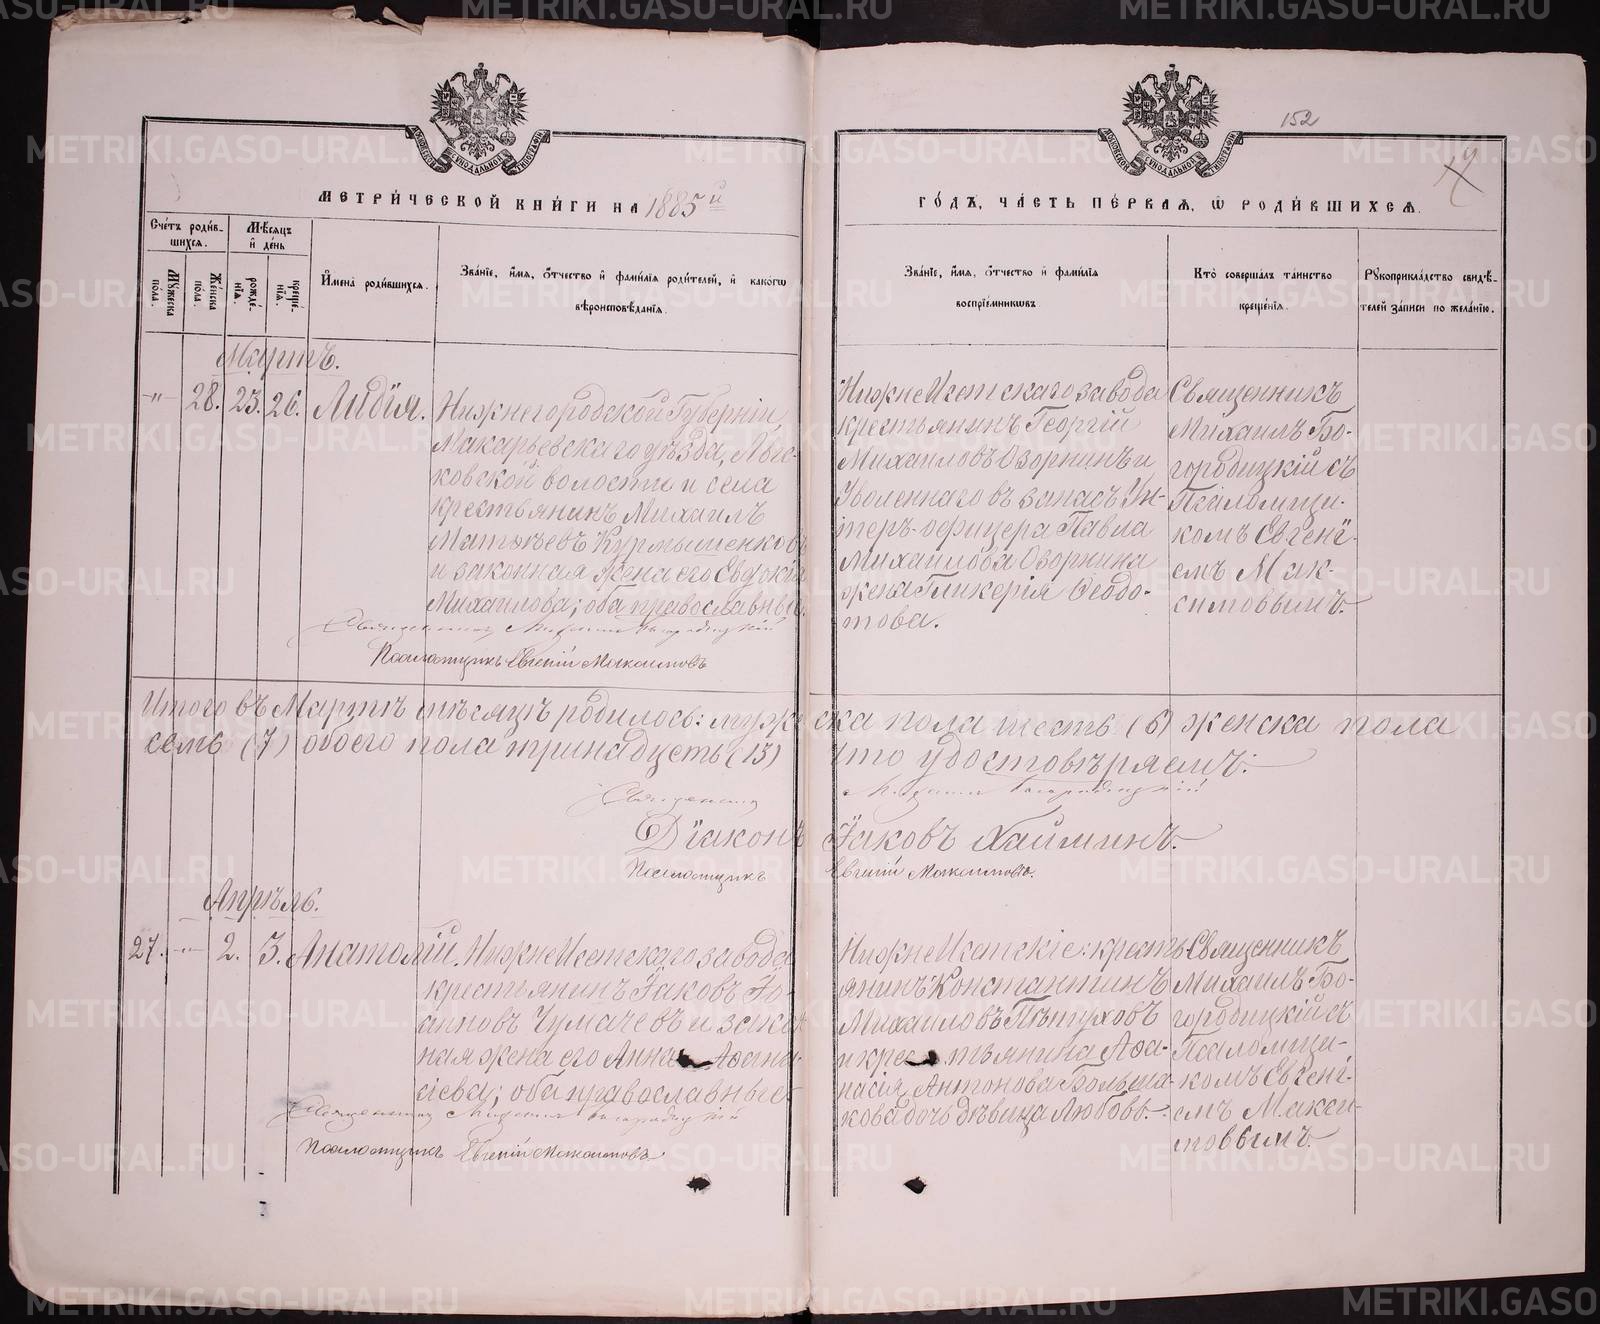 152
19
МЕТРИ́ЧЕСКОЙ КНИ́ГИ НА 1885 й
ГО́ДЪ, ЧА́СТЬ ПЕ́РВАЯ, Ѿ РОДИ́ВШИХСЯ.
Сче́тъ роди́в-
шихся.
Мꙋ́жеска
пола.
Же́нска
пола.
Мѣ́сяцъ
и҆ де́нь
рожде́-
нїя.
креще́-
нїя.
И҆мена̀ роди́вшихся.
Зва́нїе, и҆́мя, ѻ҆́тчество и҆ фами́лїя роди́телей, и҆ како́гѡ
вѣроисповѣ́данїя.
Зва́нїе, и҆́мя, ѻ҆́тчество и҆ фами́лїя
воспрїе́мникѡвъ.
Кто̀ соверша́лъ та́инство
креще́нїя.
Рꙋкоприкла́дство свидѣ́-
телей за́писи по жела́нїю.
Мартъ.
-"- 28. 23. 26. Лидія.
Нижнегородской Губерніи
Макарьевскаго уѣзда,
ковской волости и села
крестьянинъ Михаилъ
Матвѣевъ Курмышенковъ
и законная жена его Евдокія
Михаилова; оба православные.
Священникъ Михаилъ Богородицкій
Псаломщикъ Евгеній Максимовъ
НижнеИсетскаго завода
крестьянинъ Георгій
Михаиловъ Озорнинъ и
Уволеннаго въ запасъ Ун-
теръ-офицера Павла
Михаилова Озорнина
жена Гликерія Ѳеодо-
това.
Священникъ
Михаилъ Бо-
городицкій съ
Псаломщи-
комъ Евгені-
емъ Мак-
симовымъ.
Итого въ Мартѣ мѣсяцѣ родилось: мужеска пола шесть (6) женска пола
семь (7) обоего пола тринадцать (13) Что удостовѣряемъ:
Священникъ Михаилъ Богородицкій
Діаконъ Іаковъ Хайминъ.
Псаломщикъ Евгеній Максимовъ.
Апрѣль.
27. -"- 2. 3. Анатолій.
НижнеИсетскаго завода
крестьянинъ Іаковъ Іо-
анновъ Чумачевъ и закон-
ная жена его Анна Аѳана-
сіева; оба православные
Священникъ Михаилъ Богородицкій
Псаломщикъ Евгеній Максимовъ
НижнеИсетскіе: кресть-
янинъ Константинъ
Михаиловъ Пѣтуховъ
и крестьянина Аѳа-
насія Антонова Больша-
кова дочь дѣвица Любовь.
Священникъ
Михаилъ Бо-
городицкій съ
Псаломщи-
комъ Евгені-
емъ Макси-
мовымъ.
METRIKI.GASO-URAL.RU